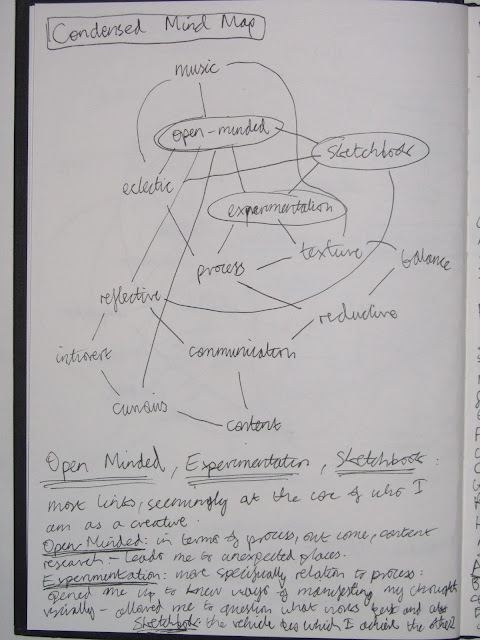 Condensed Mind Map
music
open-minded
Sketchbook
eclectic
experimentation
texture
balance
process
reflective
reductive
introvert
communication
curious
content
Open Minded, Experimentation, Sketchbook:
most links, seemingly at the core of who I
am as a creative.
Open Minded: in terms of process, out come, content
research – leads me to unexpected places.
Experimentation: more specifically relation to process:
opened me up to knew ways of manifesting my thoughts
visually – allowed me to question what works best and also
Sketchbook: the vehicle by which I achieve the other 2